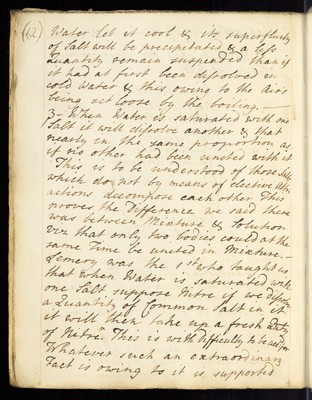 (42) Water let it cool & its superfluity
of Salt will be precipitated & a less
Quantity remain suspended than if
it had at first been dissolved in
cold Water & this owing to the Air's
being set loose by the boiling. —
3 – When Water is saturated with one
Salt it will dissolve another & that
nearly in the same proportion as
if no other had been united with it
This is to be understood of those Salts
which do not by means of elective Attr
actions decompose each other. This
proves the Difference we said there
was between Mixture & Solution
viz that only two bodies could at the
same Time be united in Mixture. –
Lemery was the 1st who taught us
that when Water is saturated with
one Salt suppose Nitre if we dissolve
a Quantity of Common Salt in it
it will then take up a fresh Qty
of Nitre. This is with difficulty to be acctd for
Whatever such an extraordinary
Fact is owing to it is supported